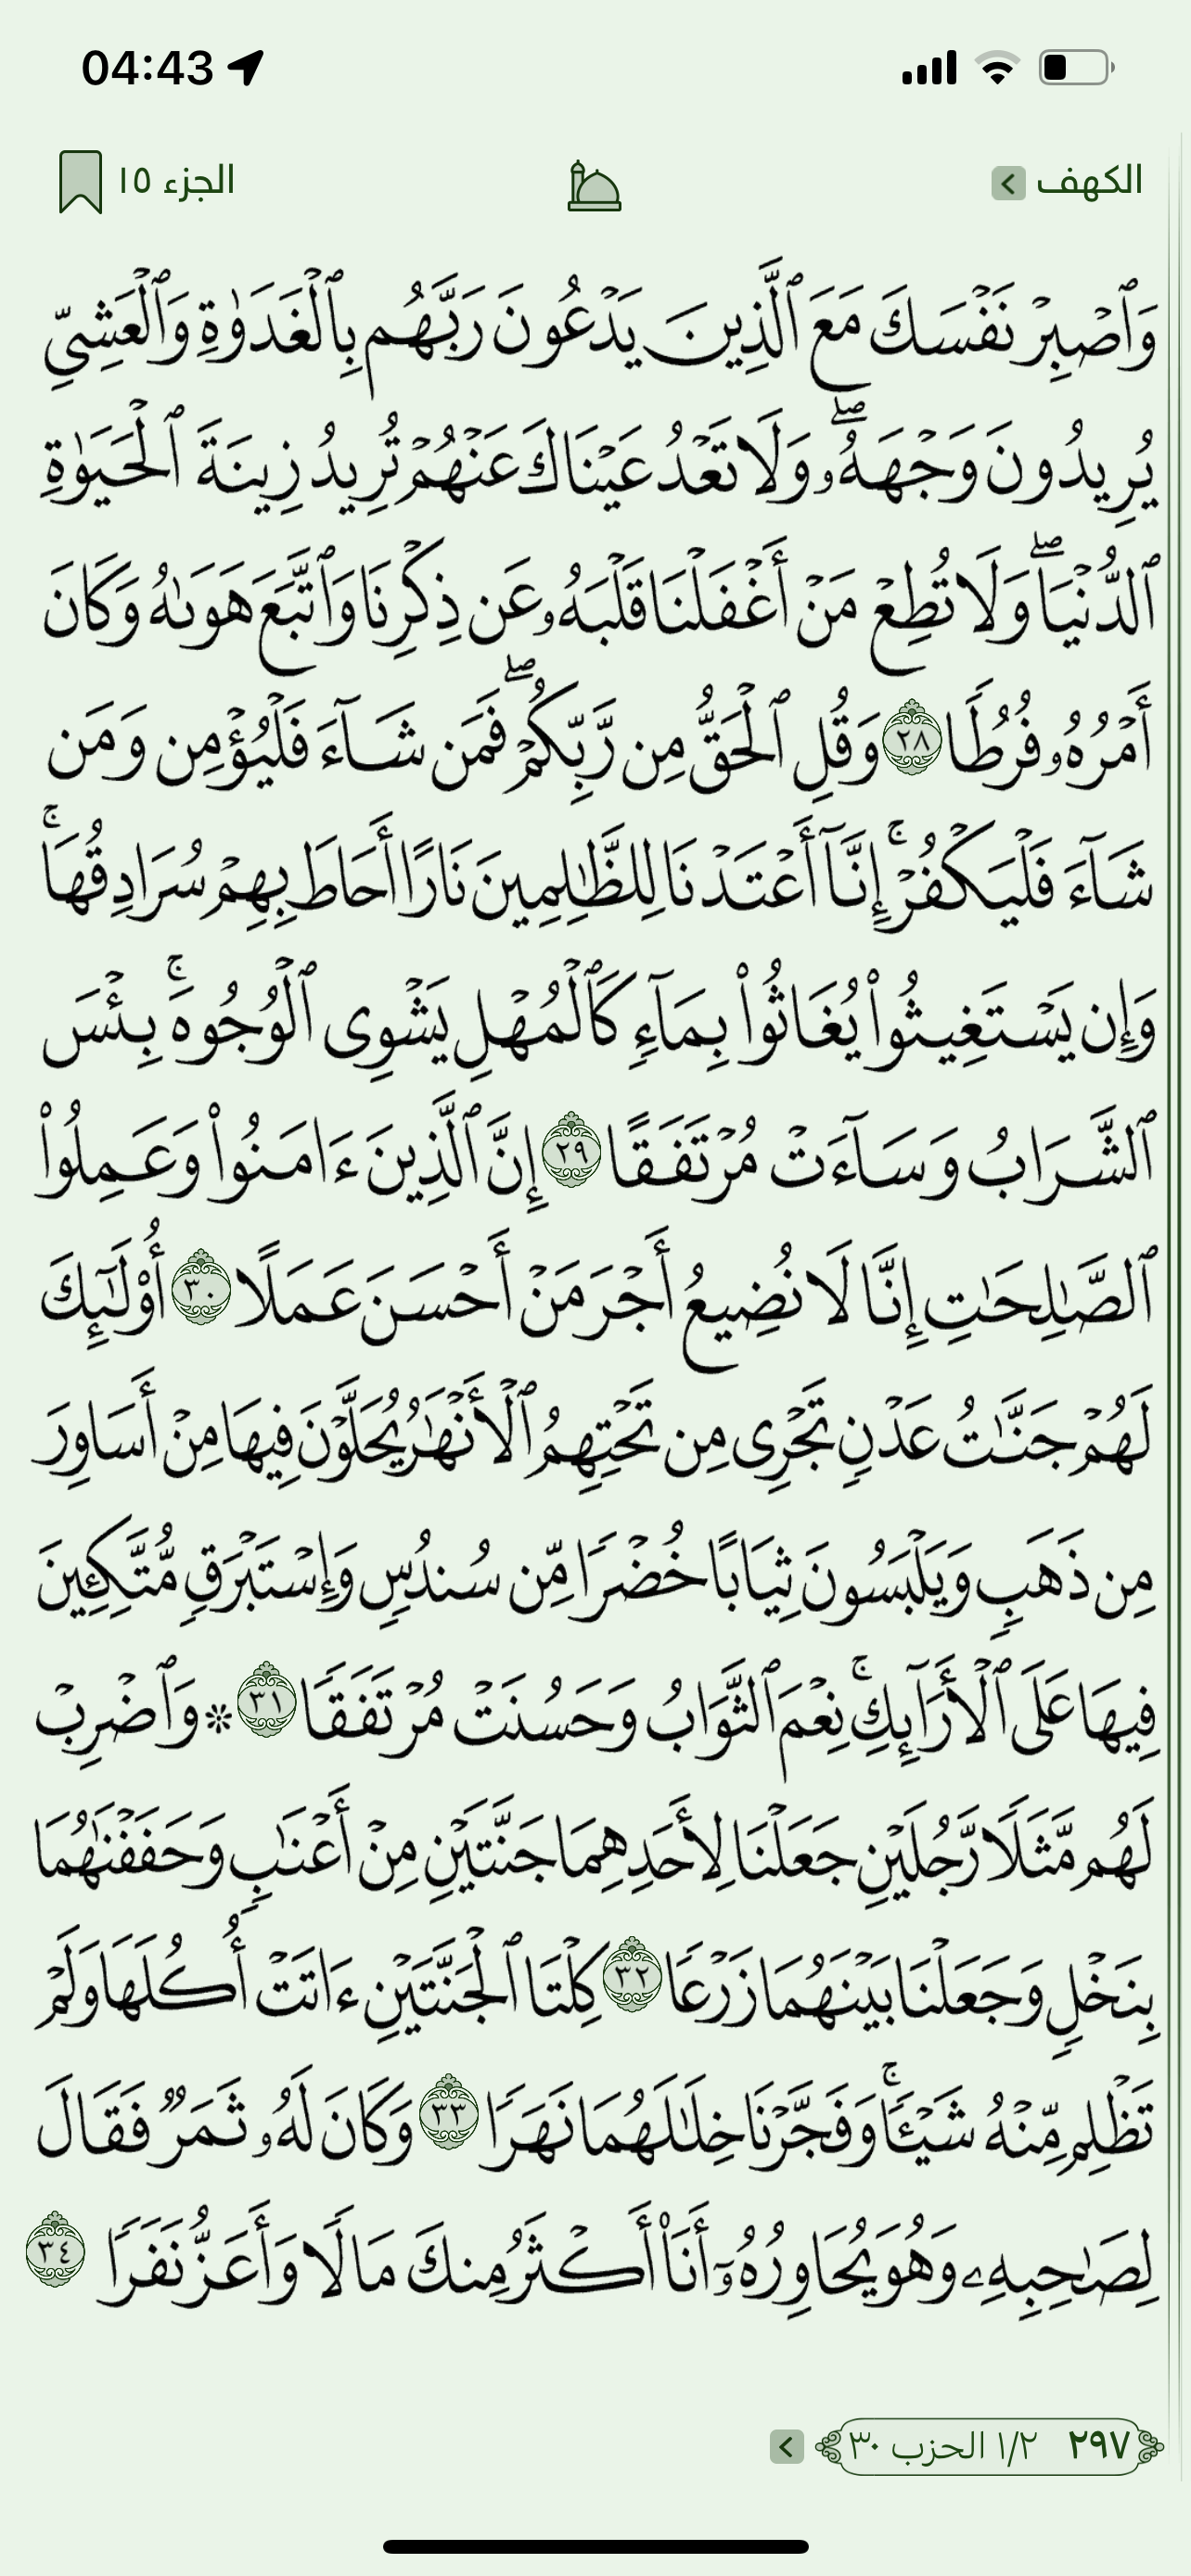 04:43
الكهف
الجزء ١٥
وَٱصۡبِرۡ نَفۡسَكَ مَعَ ٱلَّذِينَ يَدۡعُونَ رَبَّهُم بِٱلۡغَدَوٰةِ وَٱلۡعَشِيِّ
يُرِيدُونَ وَجۡهَهُۥۖ وَلَا تَعۡدُ عَيۡنَاكَ عَنۡهُمۡ تُرِيدُ زِينَةَ ٱلۡحَيَوٰةِ
ٱلدُّنۡيَاۖ وَلَا تُطِعۡ مَنۡ أَغۡفَلۡنَا قَلۡبَهُۥ عَن ذِكۡرِنَا وَٱتَّبَعَ هَوَىٰهُ وَكَانَ
أَمۡرُهُۥ فُرُطٗا ٢٨ وَقُلِ ٱلۡحَقُّ مِن رَّبِّكُمۡۖ فَمَن شَآءَ فَلۡيُؤۡمِن وَمَن
شَآءَ فَلۡيَكۡفُرۡۚ إِنَّآ أَعۡتَدۡنَا لِلظَّٰلِمِينَ نَارًا أَحَاطَ بِهِمۡ سُرَادِقُهَاۚ
وَإِن يَسۡتَغِيثُواْ يُغَاثُواْ بِمَآءٖ كَٱلۡمُهۡلِ يَشۡوِي ٱلۡوُجُوهَۚ بِئۡسَ
ٱلشَّرَابُ وَسَآءَتۡ مُرۡتَفَقًا ٢٩ إِنَّ ٱلَّذِينَ ءَامَنُواْ وَعَمِلُواْ
ٱلصَّٰلِحَٰتِ إِنَّا لَا نُضِيعُ أَجۡرَ مَنۡ أَحۡسَنَ عَمَلًا ٣٠ أُوْلَٰٓئِكَ
لَهُمۡ جَنَّٰتُ عَدۡنٖ تَجۡرِي مِن تَحۡتِهِمُ ٱلۡأَنۡهَٰرُ يُحَلَّوۡنَ فِيهَا مِنۡ أَسَاوِرَ
مِن ذَهَبٖ وَيَلۡبَسُونَ ثِيَابًا خُضۡرٗا مِّن سُندُسٖ وَإِسۡتَبۡرَقٖ مُّتَّكِـِٔينَ
فِيهَا عَلَى ٱلۡأَرَآئِكِۚ نِعۡمَ ٱلثَّوَابُ وَحَسُنَتۡ مُرۡتَفَقٗا ٣١ ۞وَٱضۡرِبۡ
لَهُم مَّثَلٗا رَّجُلَيۡنِ جَعَلۡنَا لِأَحَدِهِمَا جَنَّتَيۡنِ مِنۡ أَعۡنَٰبٖ وَحَفَفۡنَٰهُمَا
بِنَخۡلٖ وَجَعَلۡنَا بَيۡنَهُمَا زَرۡعٗا ٣٢ كِلۡتَا ٱلۡجَنَّتَيۡنِ ءَاتَتۡ أُكُلَهَا وَلَمۡ
تَظۡلِم مِّنۡهُ شَيۡـٔٗاۚ وَفَجَّرۡنَا خِلَٰلَهُمَا نَهَرٗا ٣٣ وَكَانَ لَهُۥ ثَمَرٞ فَقَالَ
لِصَٰحِبِهِۦ وَهُوَ يُحَاوِرُهُۥٓ أَنَا۠ أَكۡثَرُ مِنكَ مَالٗا وَأَعَزُّ نَفَرٗا ٣٤
٢٩٧ ١/٢ الحزب ٣٠